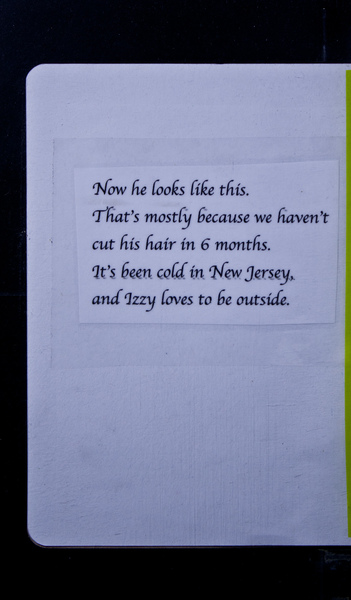 Now he looks like this.
That's mostly because we haven't
cut his hair in 6 months.
It's been cold in New Jersey,
and Izzy loves to be outside.